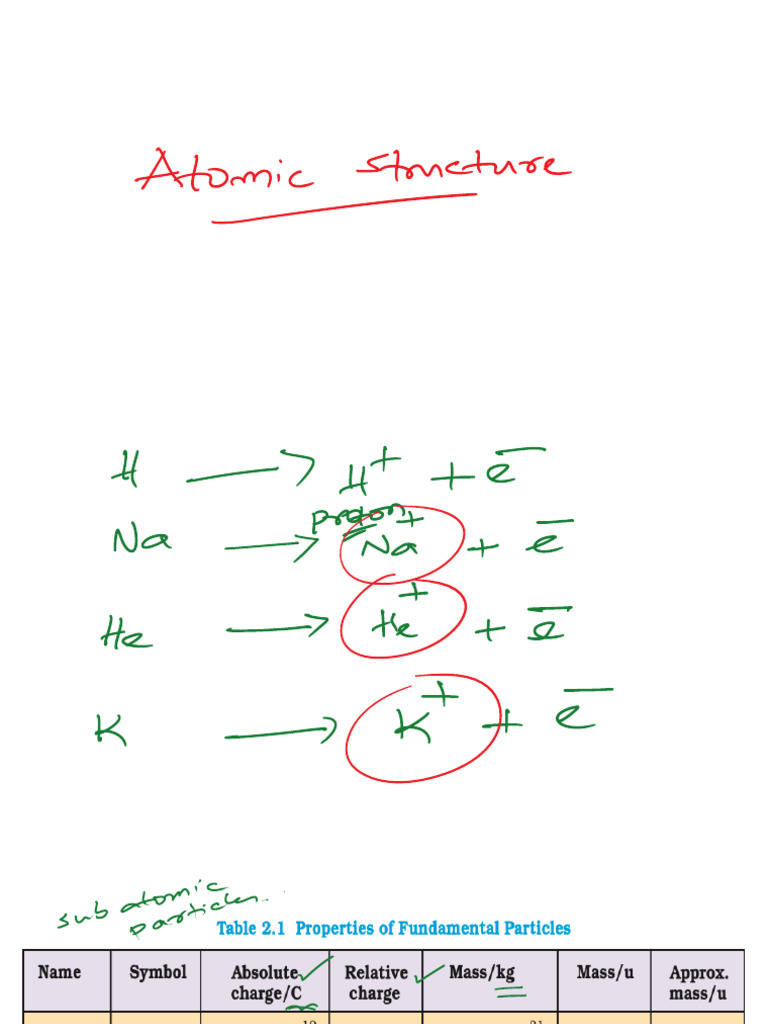 Atomic structure
H ⟶ H⁺ + e⁻
proton
Na ⟶ Na⁺ + e⁻
He ⟶ He⁺ + e⁻
K ⟶ K⁺ + e⁻
sub atomic
particles.
Table 2.1 Properties of Fundamental Particles
Name Symbol Absolute charge/C Relative charge Mass/kg Mass/u Approx. mass/u